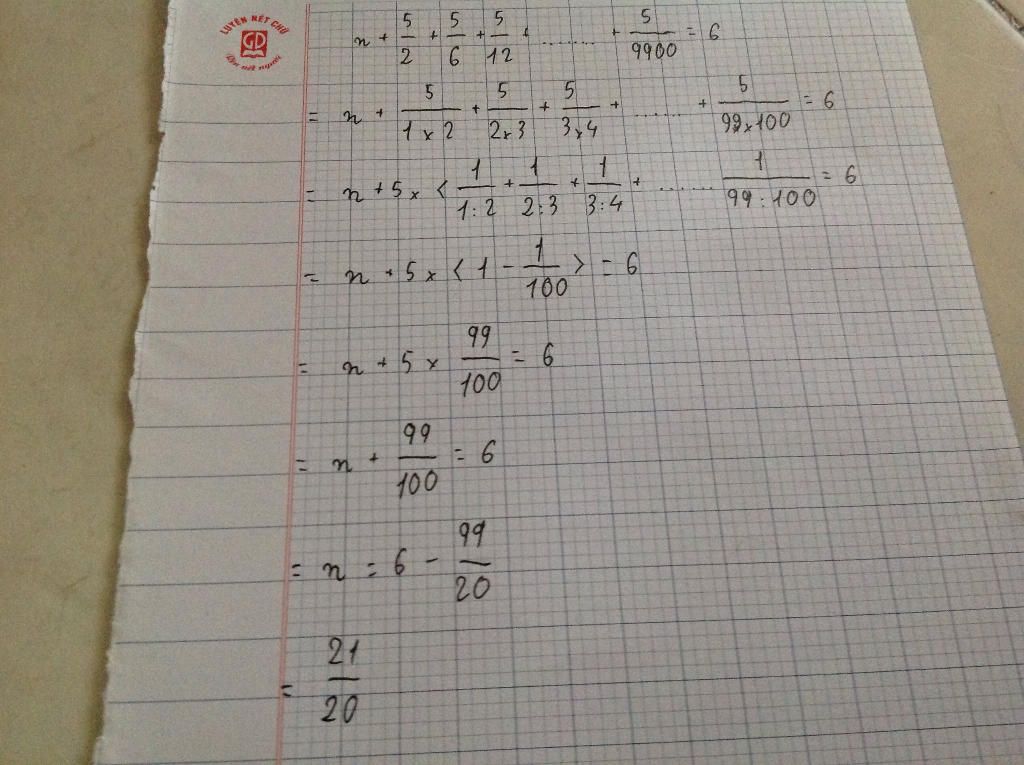 LUYỆN NÉT CHỮ
GD
Rèn nết người
n + 5/2 + 5/6 + 5/12 + ........ + 5/9900 = 6
= n + 5/1×2 + 5/2×3 + 5/3×4 + ...... + 5/99×100 = 6
= n + 5 × < 1/1:2 + 1/2:3 + 1/3:4 + ....... 1/99:100 = 6
= n + 5 × < 1 - 1/100 > = 6
= n + 5 × 99/100 = 6
= n + 99/100 = 6
= n = 6 - 99/20
= 21/20